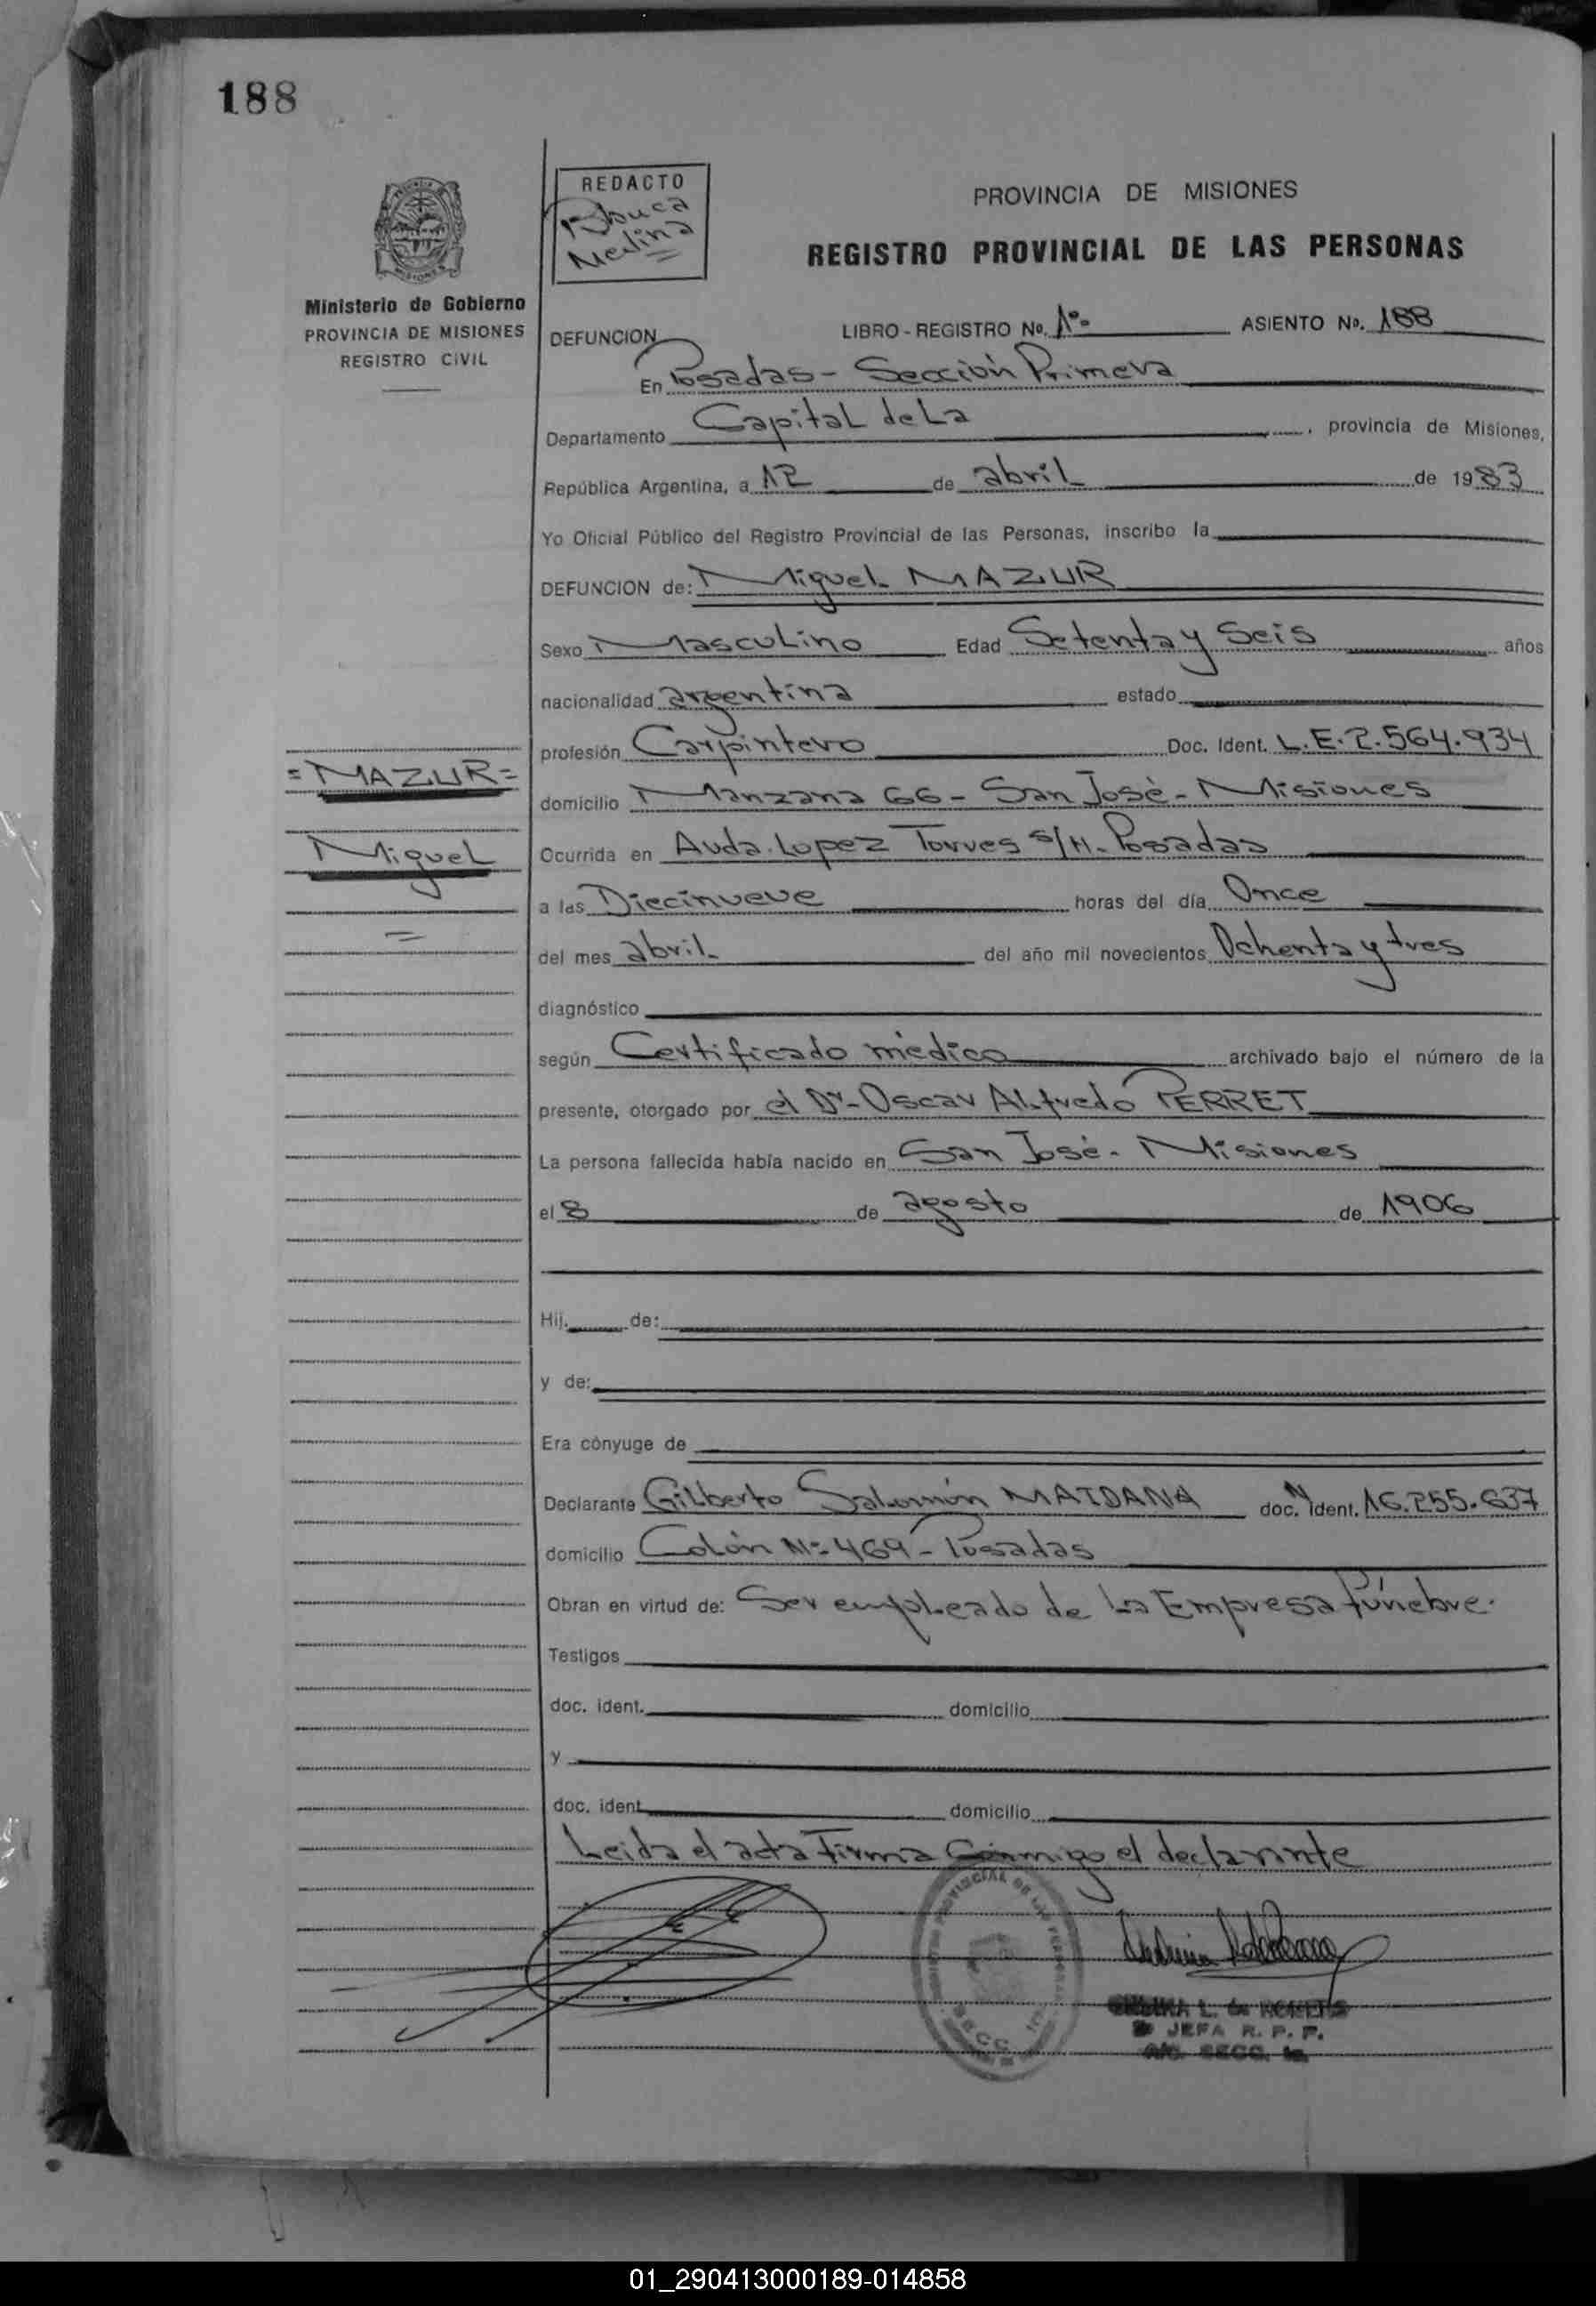 188
REDACTO
Blanca
Medina
MISIONES
Ministerio de Gobierno
PROVINCIA DE MISIONES
REGISTRO CIVIL
PROVINCIA DE MISIONES
REGISTRO PROVINCIAL DE LAS PERSONAS
DEFUNCION LIBRO - REGISTRO No. 1º- ASIENTO No. 188
En Posadas - Sección Primera
Departamento Capital de La , provincia de Misiones,
República Argentina, a 12 de abril de 1983
Yo Oficial Público del Registro Provincial de las Personas, inscribo la
DEFUNCION de: Miguel MAZUR
Sexo Masculino Edad Setenta y Seis años
nacionalidad argentina estado
profesión Carpintero Doc. Ident. L.E. 2.564.934
=MAZUR=
domicilio Manzana 66 - San José - Misiones
Miguel
Ocurrida en Avda. Lopez Torres s/N. Posadas
a las Diecinueve horas del día Once
=
del mes abril del año mil novecientos Ochenta y tres
diagnóstico
según Certificado médico archivado bajo el número de la
presente, otorgado por el Dr. Oscar Alfredo PERRET
La persona fallecida había nacido en San José - Misiones
el 8 de agosto de 1906
Hij. de:
y de:
Era cònyuge de
Declarante Gilberto Salomón MAIDANA doc. N ident. 16.255.637
domicilio Colón Nº 469 - Posadas
Obran en virtud de: Ser empleado de la Empresa fúnebre.
Testigos
doc. ident. domicilio
y
doc. ident. domicilio
Leida el acta Firma Conmigo el declarante
SECC.
L. de
JEFA R. P. P.
A/C. SECC. 1a.
01_290413000189-014858